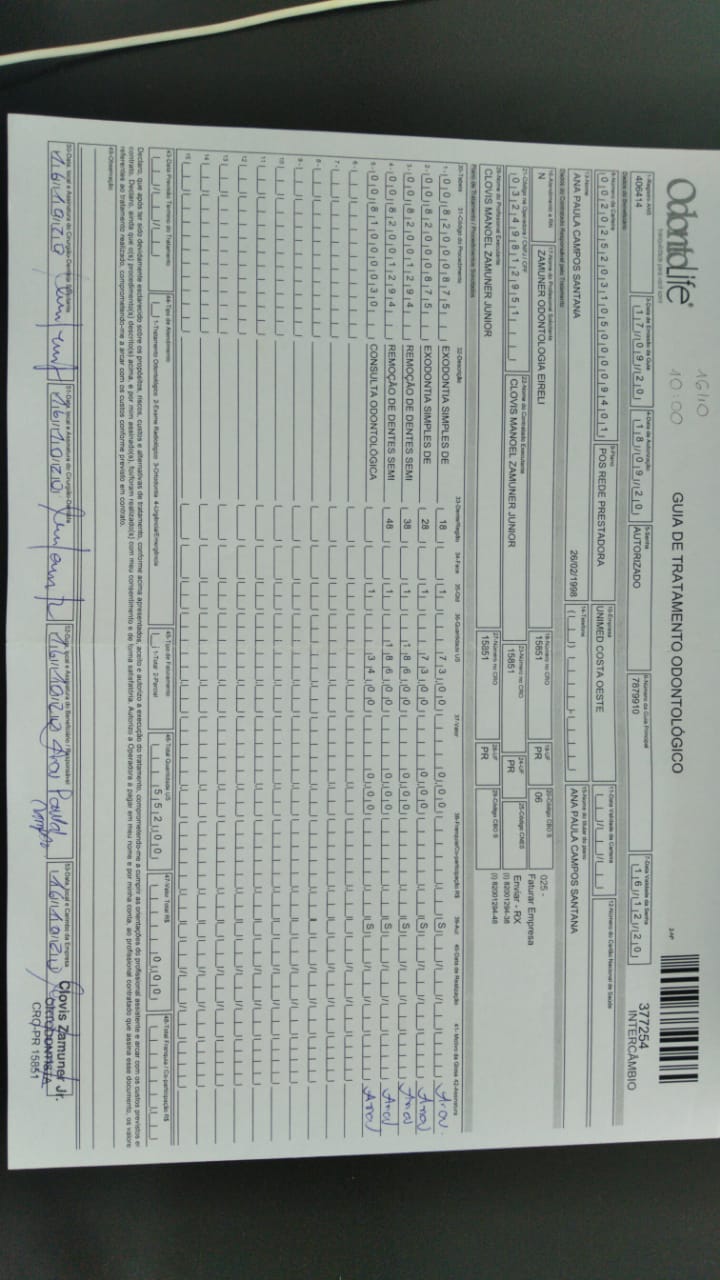 16/10
10:00
OdontoLife®
GUIA DE TRATAMENTO ODONTOLÓGICO
377254
INTERCÂMBIO
1-Registro ANS
406414
3-Data de Emissão da Guia
17/09/20
4-Data de Autorização
18/09/20
5-Senha
AUTORIZADO
6-Número da Guia Principal
7879910
7-Data Validade da Senha
16/12/20
Dados do Beneficiário
8-Número da Carteira
00202520310500009401
9-Plano
POS REDE PRESTADORA
10-Empresa
UNIMED COSTA OESTE
11-Data Validade da Carteira
12-Número do Cartão Nacional de Saúde
13-Nome
ANA PAULA CAMPOS SANTANA
26/02/1998
14-Telefone
15-Nome do titular do plano
ANA PAULA CAMPOS SANTANA
Dados do Contratado Responsável pelo Tratamento
16-Atendimento a RN
N
17-Nome do Profissional Solicitante
ZAMUNER ODONTOLOGIA EIRELI
18-Número no CRO
15851
19-UF
PR
20-Código CBO S
06
025 -
Faturar Empresa
Enviar - RX
(I) 82001294-38
(I) 82001294-48
21-Código na Operadora / CNPJ / CPF
03249812951
22-Nome do Contratado Executante
CLOVIS MANOEL ZAMUNER JUNIOR
23-Número no CRO
15851
24-UF
PR
25-Código CNES
26-Nome do Profissional Executante
CLOVIS MANOEL ZAMUNER JUNIOR
27-Número no CRO
15851
28-UF
PR
29-Código CBO S
Plano de Tratamento / Procedimentos Solicitados
30-Tabela 31-Código do Procedimento 32-Descrição 33-Dente/Região 34-Face 35-Qtd 36-Quantidade US 37-Valor 38-Franquia/Co-participação R$ 39-Aut 40-Data de Realização 41-Motivo da Glosa 42-Assinatura
1- 00 82000875 EXODONTIA SIMPLES DE 18 1 73,00 0,00 S Ana
2- 00 82000875 EXODONTIA SIMPLES DE 28 1 73,00 0,00 S Ana
3- 00 82001294 REMOÇÃO DE DENTES SEMI 38 1 186,00 0,00 S Ana
4- 00 82001294 REMOÇÃO DE DENTES SEMI 48 1 186,00 0,00 S Ana
5- 00 81000030 CONSULTA ODONTOLÓGICA 1 34,00 0,00 S Ana
6-
7-
8-
9-
10-
11
12
13
14
15
43-Data Prevista Término do Tratamento
44-Tipo de Atendimento
1-Tratamento Odontológico 2-Exame Radiológico 3-Ortodontia 4-Urgência/Emergência
45-Tipo de Faturamento
1-Total 2-Parcial
46-Total Quantidade US
552,00
47-Valor Total R$
0,00
48-Total Franquia / Co-participação R$
Declaro, que após ter sido devidamente esclarecido sobre os propósitos, riscos, custos e alternativas de tratamento, conforme acima apresentados, aceito e autorizo a execução do tratamento, comprometendo-me a cumprir as orientações do profissional assistente e arcar com os custos previstos em
contrato. Declaro, ainda que o(s) procedimento(s) descrito(s) acima, e por mim assinado(s), foi/foram realizado(s) com meu consentimento e de forma satisfatória. Autorizo a Operadora a pagar em meu nome e por minha conta, ao profissional contratado que assina esse documento, os valores
referentes ao tratamento realizado, comprometendo-me a arcar com os custos conforme previsto em contrato.
49-Observação
50-Data, local e Assinatura do Cirurgião-Dentista Solicitante
16/10/20
51-Data, local e Assinatura do Cirurgião-Dentista
16/10/20
52-Data, local e Assinatura do Beneficiário / Responsável
16/10/20 Ana Paula Campos
53-Data, local e Carimbo da Empresa
16/10/20
Clovis Zamuner Jr.
ORTODONTISTA
CRO-PR 15851